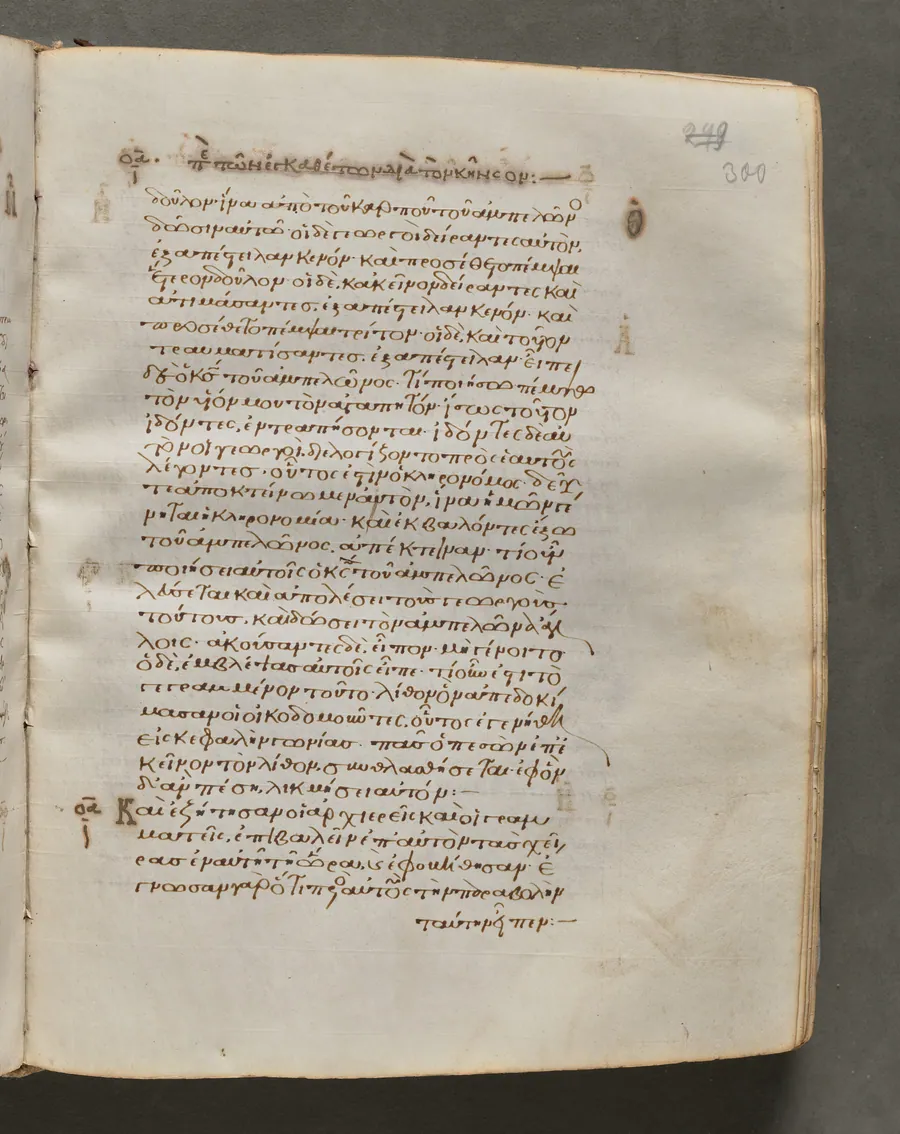 249
300
οα. πε τῶν ἐγκαθέτων διὰ τὸν κῆνσον:—
δοῦλον· ἵνα ἀπὸ τοῦ καρποῦ τοῦ ἀμπελῶνο
δώσιν αὐτῶ· οἱ δὲ γεωργοὶ δείραντες αὐτὸν,
ἐξαπέστειλαν κενόν· καὶ προσέθετο πέμψαι
ἕτερον δοῦλον· οἱ δὲ, κἀκεῖνον δείραντες καὶ
ἀτιμάσαντες, ἐξαπέστειλαν κενόν· καὶ
προσέθετο πέμψαι τρίτον· οἱ δὲ, καὶ τοῦτον
τραυματίσαντες, ἐξαπέστειλαν· εἶπε
δὲ ὁ κς τοῦ ἀμπελῶνος· τί ποιήσω πέμψω
τὸν υἱόν μου τὸν ἀγαπητόν· ἴσως τοῦτον
ἰδόντες, ἐντραπήσονται· ἰδόντες δὲ αυ
τὸν οἱ γεωργοὶ, διελογίζοντο πρὸς ἑαυτοὺς
λέγοντες· οὗτος ἐστὶν ὁ κληρονόμος· δεῦ
τε ἀποκτείνωμεν αὐτὸν, ἵνα ἡμῶν γέ
νηται ἡ κληρονομία· καὶ ἐκβαλόντες ἔξω
τοῦ ἀμπελῶνος, ἀπέκτειναν· τί οὖν
ποιήσει αὐτοῖς ὁ κς τοῦ ἀμπελῶνος· ἐ
λεύσεται καὶ ἀπολέσει τοὺς γεωργοὺς
τούτους, καὶ δώσει τὸν ἀμπελῶνα ἄλ
λοις· ἀκούσαντες δὲ, εἶπον· μὴ γένοιτο
ὁ δὲ, ἐμβλέψας αὐτοῖς εἶπε· τί οὖν ἐστι τὸ
γεγραμμένον τοῦτο· λίθον ὃν ἀπεδοκί
μασαν οἱ οἰκοδομοῦντες, οὗτος ἐγενήθη
εἰς κεφαλὴν γωνίας· πᾶς ὁ πεσὼν ἐπ' ἐ
κεῖνον τὸν λίθον, συνθλασθήσεται· ἐφ' ὃν
δ' ἂν πέση, λικμήσει αὐτόν:—
οα Καὶ ἐζήτησαν οἱ ἀρχιερεῖς καὶ οἱ γραμ
ματεῖς, ἐπιβαλεῖν ἐπ' αὐτὸν τὰς χεῖ
ρας ἐν αὐτῆ τῆ ὥρα, κ ἐφοβήθησαν· ἔ
γνωσαν γὰρ ὅτι πρὸς αὐτοὺς τὴν παραβολὴν
ταύτην εἶπεν:—